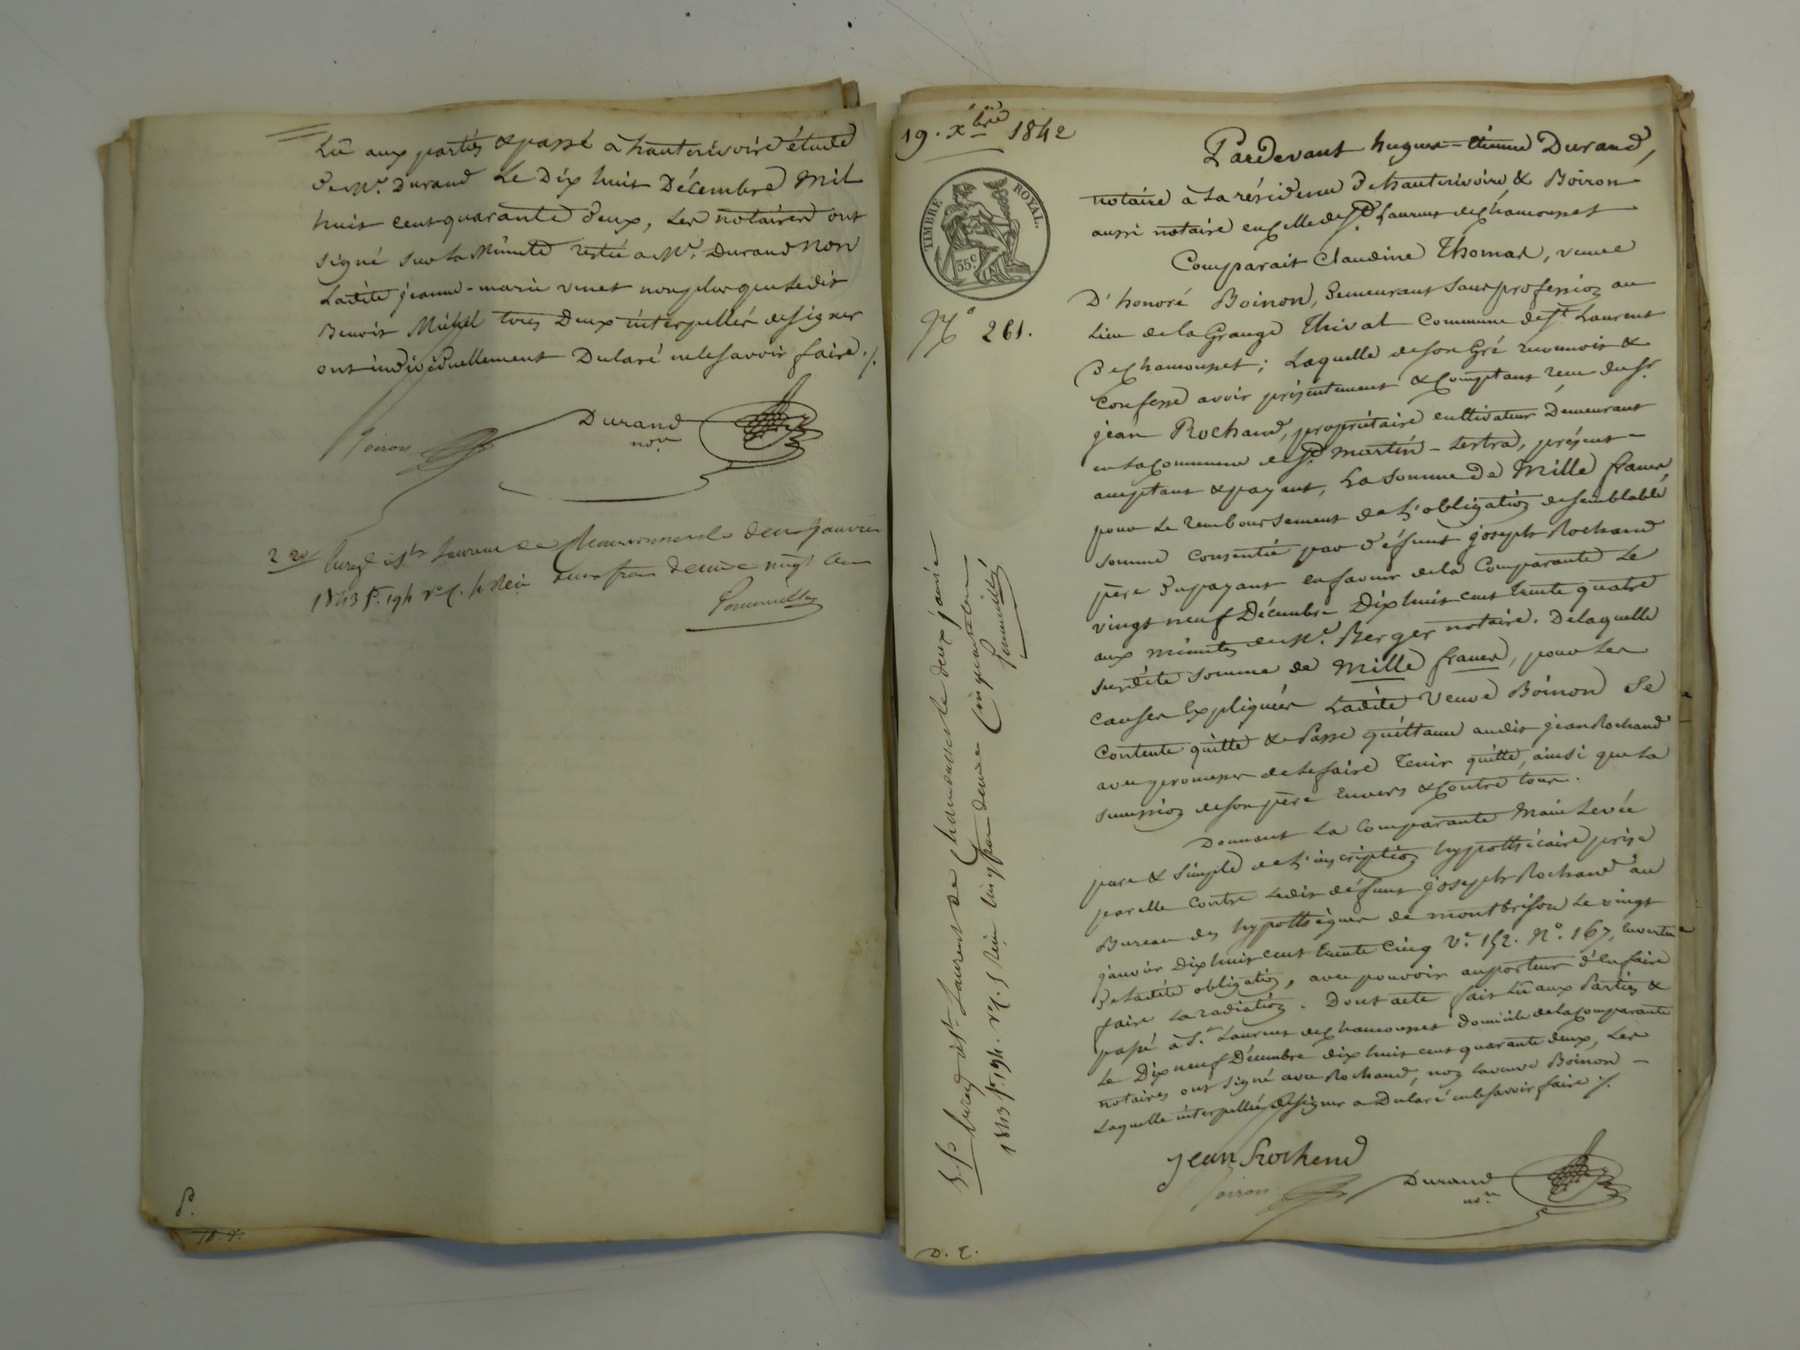 Lû aux parties & passé à hauterivoire étude
de Me. Durand Le Dix huit Décembre Mil
huit cent quarante deux, Les notaires ont
signé sur La Minute restée a Me. Durand Non
Ladite jeanne-marie venet non plus que Ledit
Benoit Michel tous Deux interpellés de signer
ont individuellement Déclaré ne le savoir faire ./.
Boiron
Durand
nore
2 20 Enregé à St Laurent de Chamousset le deux janvier
1843 fo. 194 Vo C. 4 Reçu deux francs decime vingt cen
P.
19. Xbre 1842
TIMBRE ROYAL
35c
No 261.
Pardevant hugues-étienne Durand,
notaire à La résidence De hauterivoire & Boiron
aussi notaire en Celle de St Laurent de Chamousset
Comparait Claudine Thomas, veuve
D'honoré Boinon, Demeurant Sans profession au
Lieu de la Grange Thivat Commune de St Laurent
De Chamousset; Laquelle de son Gré reconnoit &
Confesse avoir présentement & Comptant reçu du Sr.
jean Rochand, propriétaire cultivateur Demeurant
en La Commune de St. Martin-Lestra, présent
acceptant & payant, La somme De Mille francs,
pour Le remboursement de L'obligation de semblable
somme Consentie par Défunt joseph Rochand
père Du payant en faveur de la Comparante Le
vingt neuf Décembre Dix huit cent trente quatre
aux minutes de Me. Berger notaire. De laquelle
susdite somme de Mille francs, pour Les
causes Expliquées Ladite Veuve Boinon Se
Contente quitte & Passe quittance audit jean Rochand
avec promesse de Le faire Tenir quitte, ainsi que La
succession de son père Envers & Contre tous.
Donnant La Comparante Main Levée
pure & Simple de L'inscription hypothécaire prise
par elle Contre Ledit défunt joseph Rochand au
Bureau des hypothèques de Montbrison Le vingt
janvier Dix huit cent trente Cinq Ve. 152. No. 167, en vertu
De Ladite obligation, avec pouvoir au porteur d'en faire
faire La radiation. Dont acte fait Lû aux Parties &
passé à St. Laurent de Chamousset domicile de la Comparante
Le Dix neuf Décembre dix huit cent quarante deux, Les
notaires ont signé avec Rochand, non La veuve Boinon
Laquelle interpellée De signer a Déclaré ne le savoir faire ./.
jean Rochand
Boiron
Durand
nore
5.50 Enregé à St Laurent de Chamousset le deux janvier
1843 fo. 194. Vo C. 5 Reçu cinq francs decime Cinquante cen
D. E.